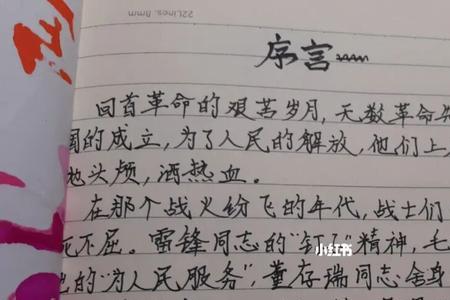 22Lines. 8mm
序言
回首革命的艰苦岁月,无数革命
国的成立,为了人民的解放,他们上
头颅,洒热血。
在那个战火纷飞的年代,战士们
不屈。雷锋同志的“钉子”精神,毛
的“为人民服务”,董存瑞同志舍身
小红书